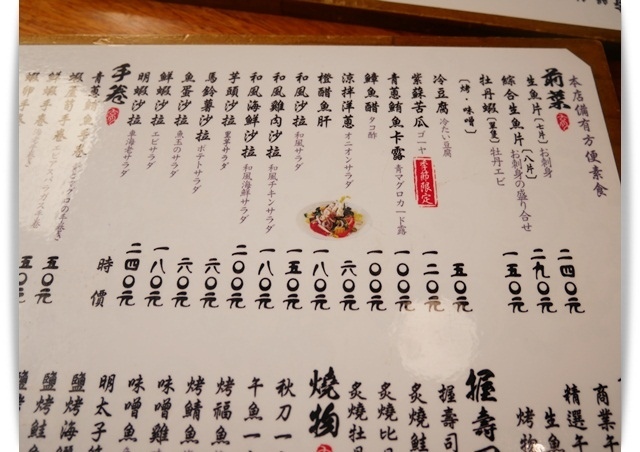 本店備有方便素食
前菜
生魚片(七片)お刺身 二四〇元
綜合生魚片(八片)お刺身の盛り合せ 二九〇元
牡丹蝦(單隻)牡丹エビ 一五〇元
(烤・味噌)
冷豆腐 冷たい豆腐 五〇元
紫蘇苦瓜 ゴーヤ 季節限定 一二〇元
青蔥鮪魚卡露 青マグロカード露 一〇〇元
鱆魚醋 タコ酢 一〇〇元
涼拌洋蔥 オニオンサラダ 六〇元
橙醋魚肝 一八〇元
和風沙拉 和風サラダ 一五〇元
和風雞肉沙拉 和風チキンサラダ 一八〇元
和風海鮮沙拉 和風海鮮サラダ 二〇〇元
芋頭沙拉 里芋サラダ 六〇元
馬鈴薯沙拉 ポテトサラダ 六〇元
魚蛋沙拉 魚玉のサラダ 一八〇元
鮮蝦沙拉 エビサラダ 二四〇元
明蝦沙拉 車海老サラダ 時價
手卷
青蔥鮪魚手卷 五〇元
蝦蘆筍手卷 五〇元
鮮蝦手卷
蝦卵手卷
商業午
精選午
生魚
烤物
握壽司
握壽司
炙燒鮭
炙燒比
炙燒牡
燒物
秋刀
午魚一
烤福魚
烤鯖魚
味噌雞
味噌魚
明太子
鹽烤海
鹽烤鮭